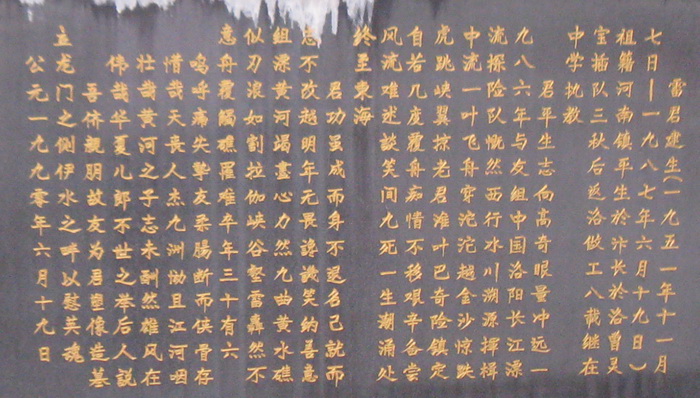 雷君建生(一九五一年十一月
七日—一九八七年六月十九日)
祖籍河南镇平生於汴长於洛曾灵
宝插队三秋后返洛做工八载继在
中学执教
君平生志向高奇眼量冲远一
九八六年与友组中国洛阳长江漂
流探险队慨然西行水川溯源挥楫
中流一叶飞舟穿沱沱越金沙惊跌
虎跳峡翼掠老君滩叶巴奇险镇定
自若几度覆舟痴情不移艰辛备尝
风流难述谈笑间九死一生潮涌处
终至東海
君功虽成而身不退名已就而
志不改越明年无畏谗讥笑纳善意
组漂黄河竭盡心力然九曲黄水礁
似刃浪如割拉伽峡谷壑雷轰然不
意舟覆觸礁罹难卒年三十有六
呜呼痛失挚友柔腸断而侠骨存
惜哉天丧人杰九洲恸且江河咽
壮哉黄河之子志未酬然雄风在
伟哉华夏儿郎不世之举后人説
吾侪親朋故友为君塑像造墓
立龙门之侧伊水之畔以慰英魂
公元一九九零年六月十九日